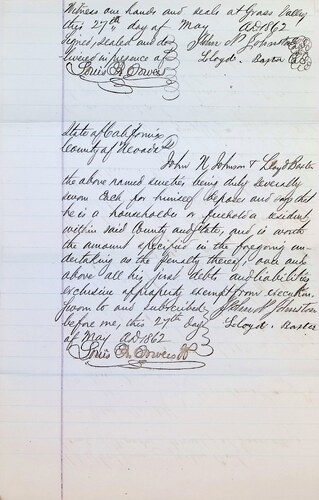 Witness our hands and seals at Grass Valley
this 27th day of May AD 1862
signed, sealed and de- John N Johnston
livered in presence of Lloyd. Baxter
Louis R. Sowers
State of California
County of Nevada } SS
John N Johnson & Lloyd Baxter
the above named sureties being duly severally
sworn each for himself deposes and says that
he is a householder or freeholder resident
within said County and State, and is worth
the amount specified in the foregoing un-
dertaking as the penalty thereof, over and
above all his just debts and liabilities
exclusive of property exempt from execution.
Sworn to and subscribed John N Johnston
before me, this 27th day Lloyd. Baxter
of May AD 1862
Louis R. Sowers